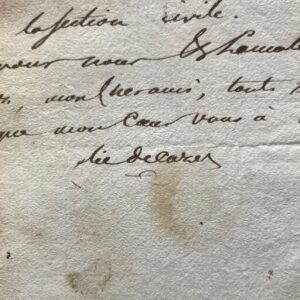 la section civile.
pour nous
mon cher ami, tout
que mon Cœur vous a
élie decazes